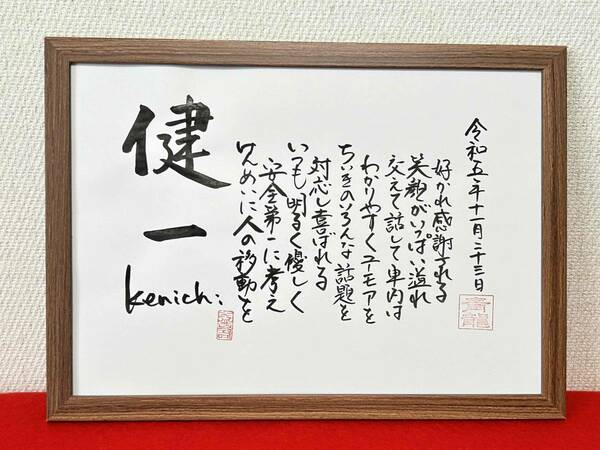 健一
Kenichi
けんめいに人の移動を
安全第一に考え
いつも明るく優しく
対応し喜ばれる
ちいきのいろんな話題を
わかりやすくユーモアを
交えて話して車内は
笑顔がいっぱい溢れ
好かれ感謝される
令和五年十一月二十三日
青龍